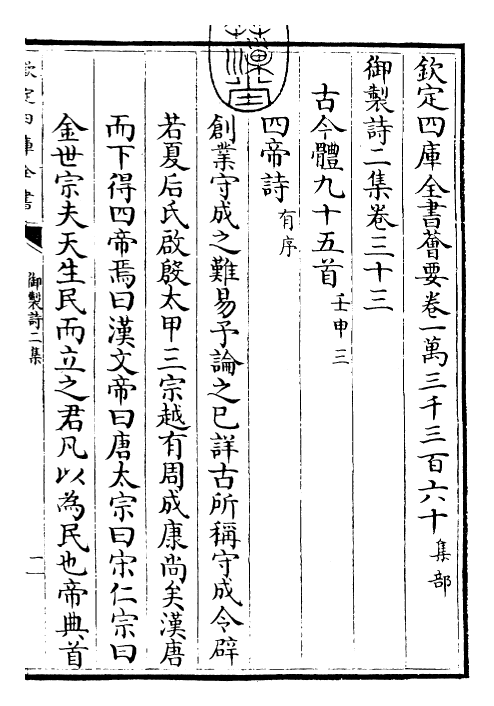 欽定四庫全書薈要卷一萬三千三百六十集部
御製詩二集卷三十三
古今體九十五首壬申三
四帝詩有序
創業守成之難易予論之已詳古所稱守成令辟
若夏后氏啟殷太甲三宗越有周成康尚矣漢唐
而下得四帝焉曰漢文帝曰唐太宗曰宋仁宗曰
金世宗夫天生民而立之君凡以為民也帝典首
欽定四庫全書
御製詩二集